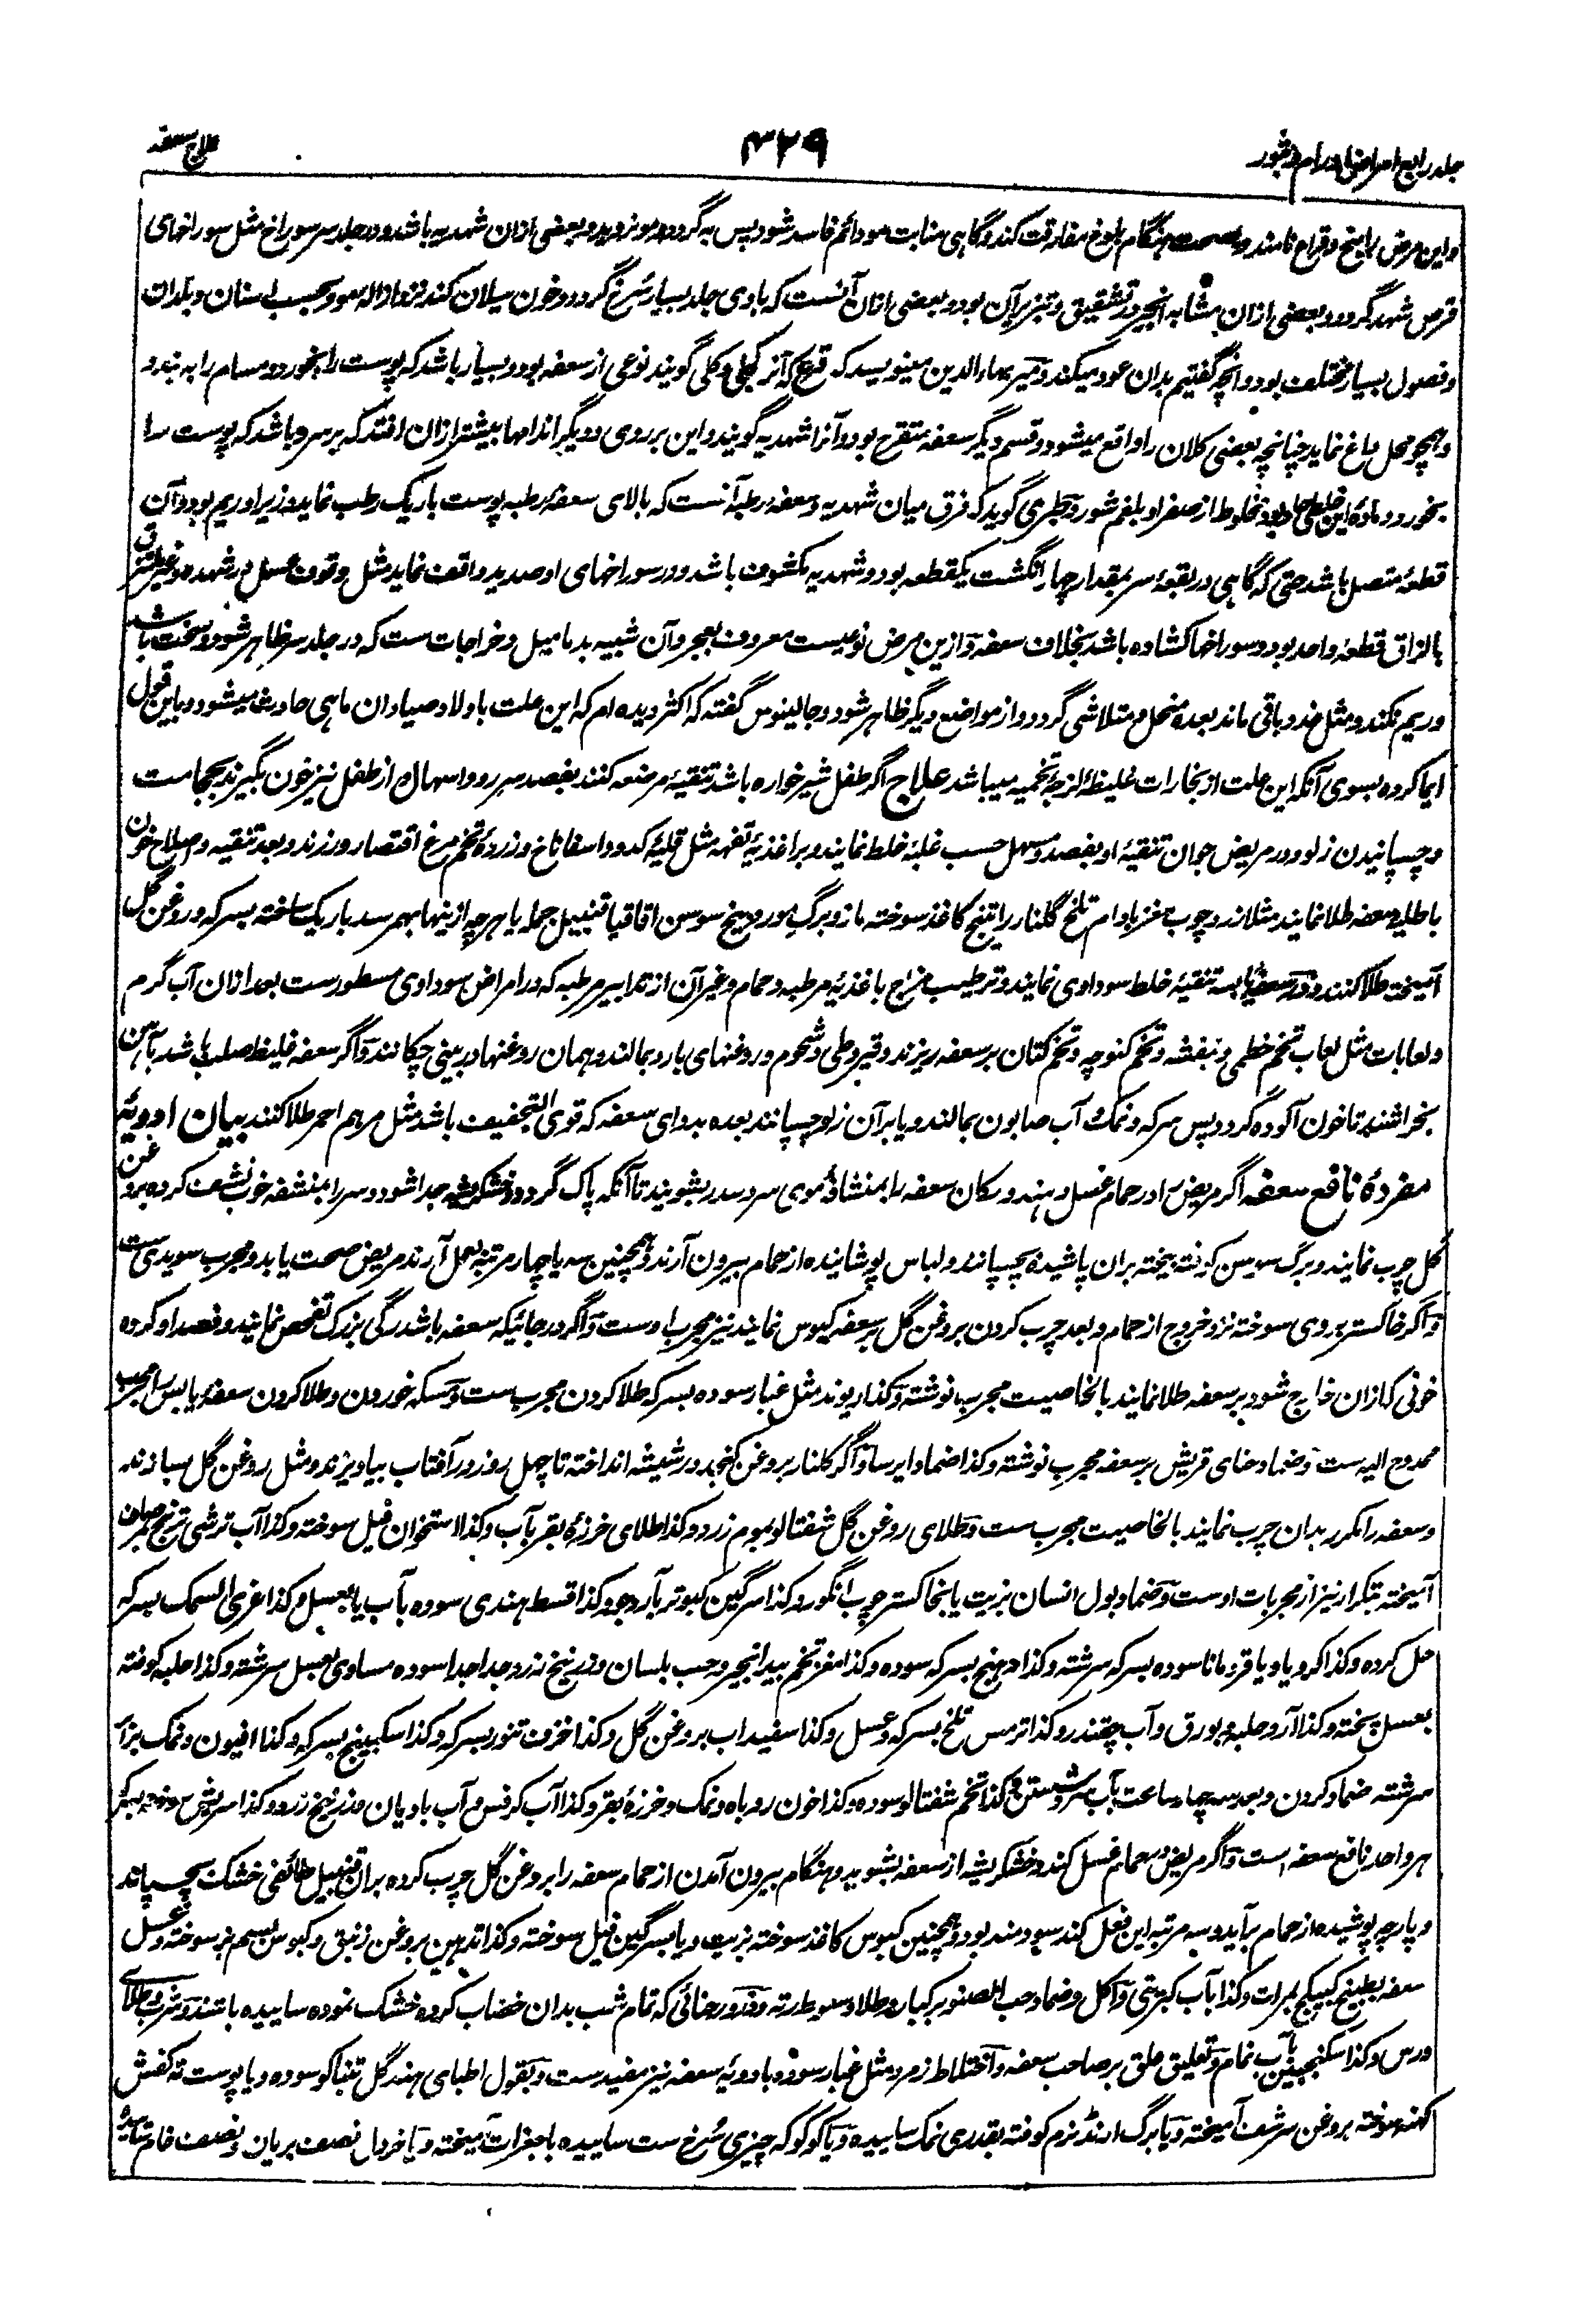 جلد رابع امراض اورام و بثور
۴۲۹
علاج سعفه
و این مرض را بنج و قراع نامند و هنگام بلوغ مفارقت کند و گاهی منابت مو دائم فاسد شود پس به گردد و مو نروید و بعضی ازان شهدیه باشد و در جلد سر سوراخ مثل سوراخهای
قرص شهد گردد و بعضی ازان مشابه انجیر در تشقیق و تبزیر آن بود و بعضی ازان آنست که با وی جلد بسیار سُرخ گردد و خون سیلان کند نزد ازاله مو و بحسب اسنان و بلدان
و فصول بسیار مختلف بود و آنچه گفتیم بدان عود میکند و میر بهاء الدین مینویسد که قرع که آنرا کچلی و کلی گویند نوعی از سعفه بود و بسیار باشد که پوست را بخورد و مسام را به بندد
و همچو محل داغ نماید چنانچه بعضی کلان را واقع میشود و قسم دیگر سعفه متقرح بود و آنرا شهدیه گویند و این بر روی و دیگر اندامها بیشتر ازان افتد که بر سر و باشد که پوست را
بخورد و ماده این خلطی حاد بود مخلوط از صفرا و بلغم شور و طبری گوید که فرق میان شهدیه و سعفه رطبه آنست که بالای سعفه رطبه پوست باریک رطب نماید و زیر او ریم بود و آن
قطعهٔ متصل باشد حتی که گاهی در بقعهٔ سر بمقدار چهار انگشت یکقطعه بود و شهدیه مکشوف باشد و در سوراخهای او صدید واقف نماید مثل وقوف عسل در شهد و غیر ملتزق
بالزاق قطعهٔ واحد بود و سوراخها کشاده باشد بخلاف سعفه و ازین مرض نوعیست معروف بعجر و آن شبیه بدمامیل و خراجات ست که در جلد سر ظاهر شود و سخت باشد
و ریم نکند و مثل غدد باقی ماند بعده منحل و متلاشی گردد و از مواضع دیگر ظاهر شود و جالینوس گفته که اکثر دیده ام که این علت باولاد صیادان ماهی حادث میشود و باین قول
ایما کرده بسوی آنکه این علت از بخارات غلیظهٔ لزجهٔ تخمیه میباشد علاج اگر طفل شیرخواره باشد تنقیهٔ مرضعه کنند بفصد سررو و اسهال و از طفل نیز خون بگیرند بحجامت
و چسپانیدن زلو و در مریض جوان تنقیهٔ او بفصد و مسهل حسب غلبهٔ خلط نمایند و بر اغذیهٔ تفهه مثل قلیهٔ کدو و اسفاناخ و زردهٔ تخم مرغ اقتصار ورزند و بعد تنقیه و اصلاح خون
باطلیهٔ سعفه طلا نمایند مثلا زردچوب مغز بادام تلخ گلنار راتینج کاغذ سوخته مازو برگ مورد بیخ سوسن اقاقیا قنبیل جمله یا هر چه ازینها بهم رسد باریک ساخته بسرکه و روغن گل
آمیخته طلا کنند و در سعفهٔ یابسه تنقیهٔ خلط سوداوی نمایند و ترطیب مزاج باغذیهٔ مرطبه و حمام و غیر آن از تدابیر مرطبه که در امراض سوداوی مسطورست بعد ازان آب گرم
و لعابات مثل لعاب تخم خطمی و بنفشه و تخم کنوچه و تخم کتان بر سعفه ریزند و قیروطی و شحوم و روغنهای بارد بمالند و همان روغنها در بینی چکانند و اگر سعفه غلیظ صلب باشد بآهن
بخراشند تا خون آلوده گردد پس سرکه و نمک و آب صابون بمالند و یا بر آن زلو چسپانند بعده بدوای سعفه که قوی التجفیف باشد مثل مرهم احمر طلا کنند بیان ادویهٔ
مفردهٔ نافع سعفه اگر مریض را در حمام غسل دهند و مکان سعفه را بمنشافهٔ موی سر و سدر بشویند تا آنکه پاک گردد و خشکریشه جدا شود و سر را بمنشفه خوب نشف کرده بروغن
گل چرب نمایند و برگ سوسن کوفته بیخته بران پاشیده بچسپانند و لباس پوشانیده از حمام بیرون آرند و همچنین سه یا چهار مرتبه بعمل آرند مریض صحت یابد و مجرب سویدی ست
و اگر خاکستر بردی سوخته نزد خروج از حمام و بعد چرب کردن بروغن گل بر سعفه کبوس نمایند نیز مجرب اوست و اگر در جائیکه سعفه باشد رگی بزرگ تفحص نمایند و فصد او کرده
خونی که ازان خارج شود بر سعفه طلا نمایند بالخاصیت مجرب نوشته و کذا ریوند مثل غبار سوده بسرکه طلا کردن مجرب ست و مسکه خوردن و طلا کردن سعفهٔ یابس را مجرب
ممدوح الیه ست و ضماد خای قریش بر سعفه مجرب نوشته و کذا ضماد ایرسا و اگر گلنار بروغن کنجد در شیشه انداخته تا چهل روز در آفتاب بیاویزند و مثل روغن گل بسازند
و سعفه را مکرر بدان چرب نمایند بالخاصیت مجرب ست و طلای روغن گل شفتالو بموم زرد و کذا طلای خرزهٔ بقر بآب و کذا استخوان فیل سوخته و کذا آب ترشی ترنج بصابون
آمیخته بتکرار نیز از مجربات اوست و ضماد بول انسان بزیت یا بخاکستر چوب انگور و کذا سرگین کبوتر بآرد جو و کذا قسط هندی سوده بآب یا بعسل و کذا غری السمک بسرکه
حل کرده و کذا کرویا و یا قردمانا سوده بسرکه سرشته و کذا دهنج بسرکه سوده و کذا مغز تخم بیدانجیر و حب بلسان و زرنیخ زرد جدا جدا سوده مساوی بعسل سرشته و کذا حلبه کوفته
بعسل پخته و کذا آرد حلبه و بورق و آب چقندر و کذا ترمس تلخ بسرکه و عسل و کذا سفیداب بروغن گل و کذا خزف تنور بسرکه و کذا سکبینج بسرکه و کذا افیون و نمک
سرشته ضماد کردن و بعد سه چهار ساعت بآب سرد شستن و کذا تخم شفتالو سوده و کذا خون روباه و نمک و خرزهٔ بقر و کذا آب کرفس و آب بادیان و زرنیخ زرد و کذا سریش سوخته بسرکه
هر واحد نافع سعفه است و اگر مریض بحمام غسل کند و خشکریشه از سعفه بشوید و هنگام بیرون آمدن از حمام سعفه را بروغن گل چرب کرده بران قنبیل طائفی خشک بچسپاند
و پارچه پوشیده از حمام برآید و سه مرتبه این فعل کند سودمند بود و همچنین کبوس کاغذ سوخته بزیت و یا سرگین فیل سوخته و کذا تدهین بروغن زنبق و کبوس سم بز سوخته و غسل
سعفه بطبیخ کبیکج بمرات و کذا بآب کبریتی و اکل و ضماد حب الصنوبر کبار و طلا و سعوط رته و ذرور حنائی که تمام شب بدان خضاب کرده خشک نموده ساییده باشند و شرب و طلای
ورس و کذا سکنجبین بآب نمام و تعلیق علق بر صاحب سعفه و اختلاط زمرد مثل غبار سوده بادویهٔ سعفه نیز مفیدست و بقول اطبای هند گل تنباکو سوده و یا پوست ته کفش
کهنه سوخته بروغن سرشف آمیخته و یا برگ ارنڈ نرم کوفته بقدری نمک ساییده و یا کوکو که چیزی سُرخ ست ساییده بامغرات آمیخته و یا خردل نصف بریان و نصف خام ساییده